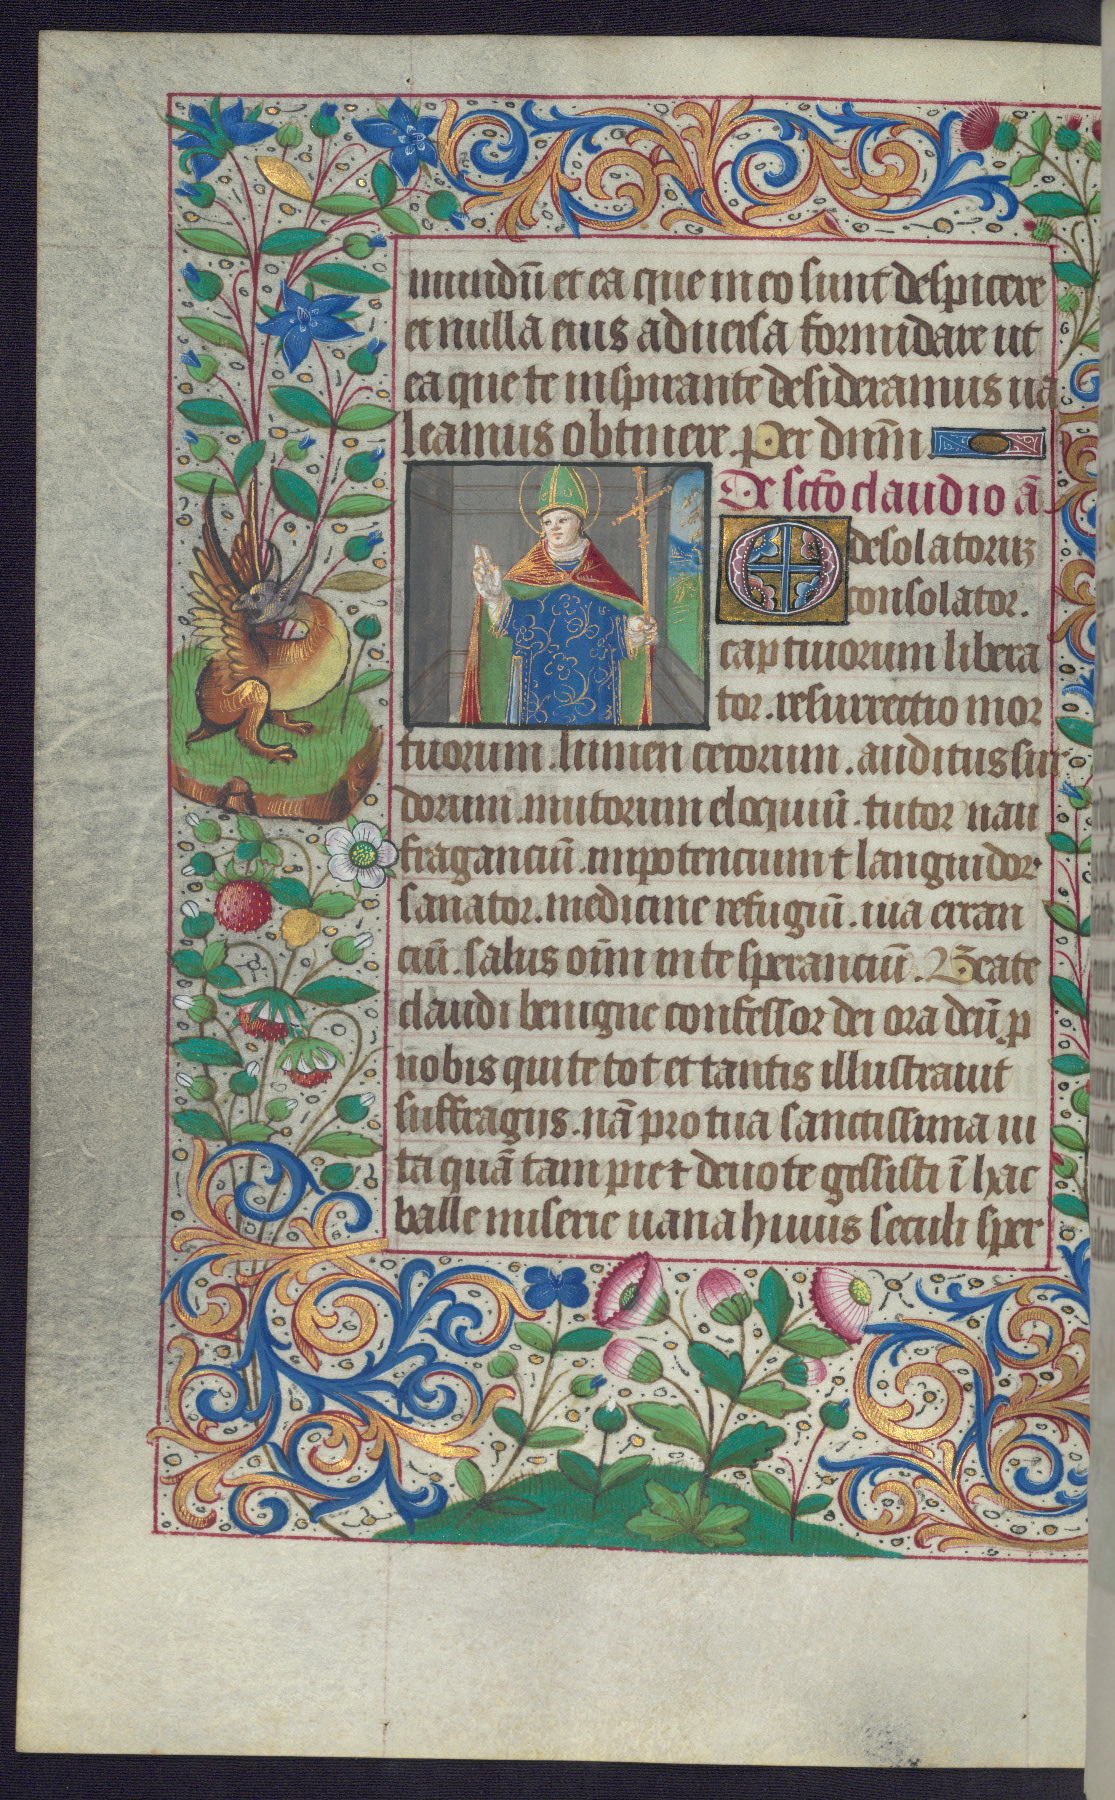 mundū et ea que in eo sunt despicere
et nulla eius aduersa formidare ut
ea que te inspirante desideramus ua
leamus obtinere. Per dnm̄
De sctō claudio ā
O desolatoruꝫ
consolator.
captiuorum libera
tor. resurrectio mor
tuorum. lumen cecorum. auditus sur
dorum. mutorum eloquiū. tutor nau
fraganciū. inpotencium ⁊ languidor
sanator. medicine refugiū. uia erran
ciū. salus oīm in te speranciū. Beate
claudi benigne confessor dei ora deū p
nobis qui te tot et tantis illustrauit
suffragijs. nā pro tua sanctissima ui
ta quā tam pie ⁊ deuote gessisti ī hac
valle miserie uana huius seculi sper